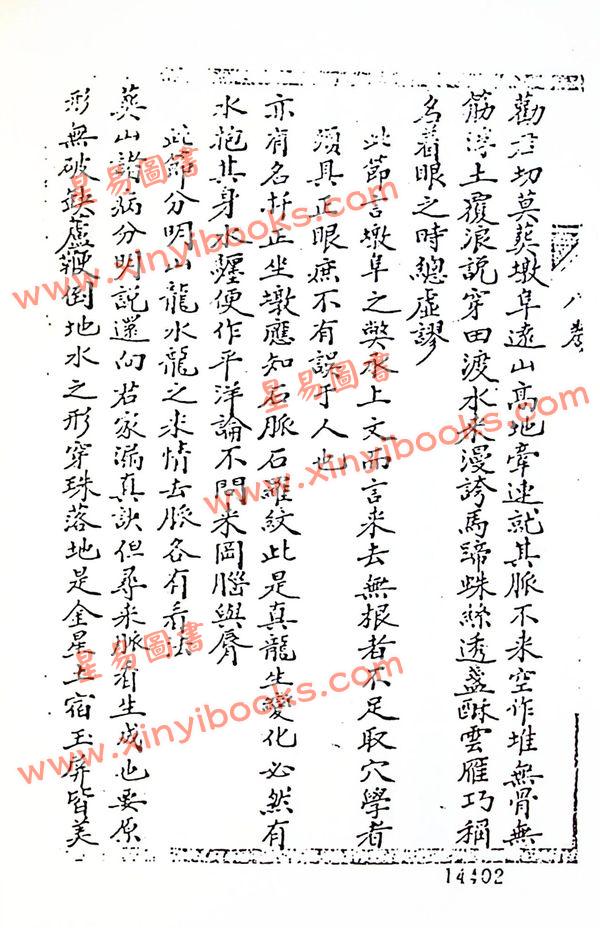 八卷
勸君切莫葬墩阜遠山高地牽連就其脈不来空作堆無骨無
筋浮土覆浪説穿田渡水来漫誇馬蹄蛛絲透盞酥雲雁巧稱
名着眼之時總虚謬
此節言墩阜之獘承上文而言来去無根者不足取穴學者
須具正眼庶不有誤于人也
亦有名扦正坐墩應知石脈石羅紋此是真龍生變化必然有
水抱其身水纒便作平洋論不問来岡腦與唇
此節分明山龍水龍之来情去脈各有看法
葬山諸病分明説還向君家漏真訣但尋来脈有生成也要原
形無破鈌蘆鞭倒地水之形穿珠落地是金星土宿玉屏皆美
14402
星易圖書
www.xinyibooks.com
星易圖書
www.xinyibooks.com
星易圖書
www.xinyibooks.com
星易圖書
www.xinyibooks.com